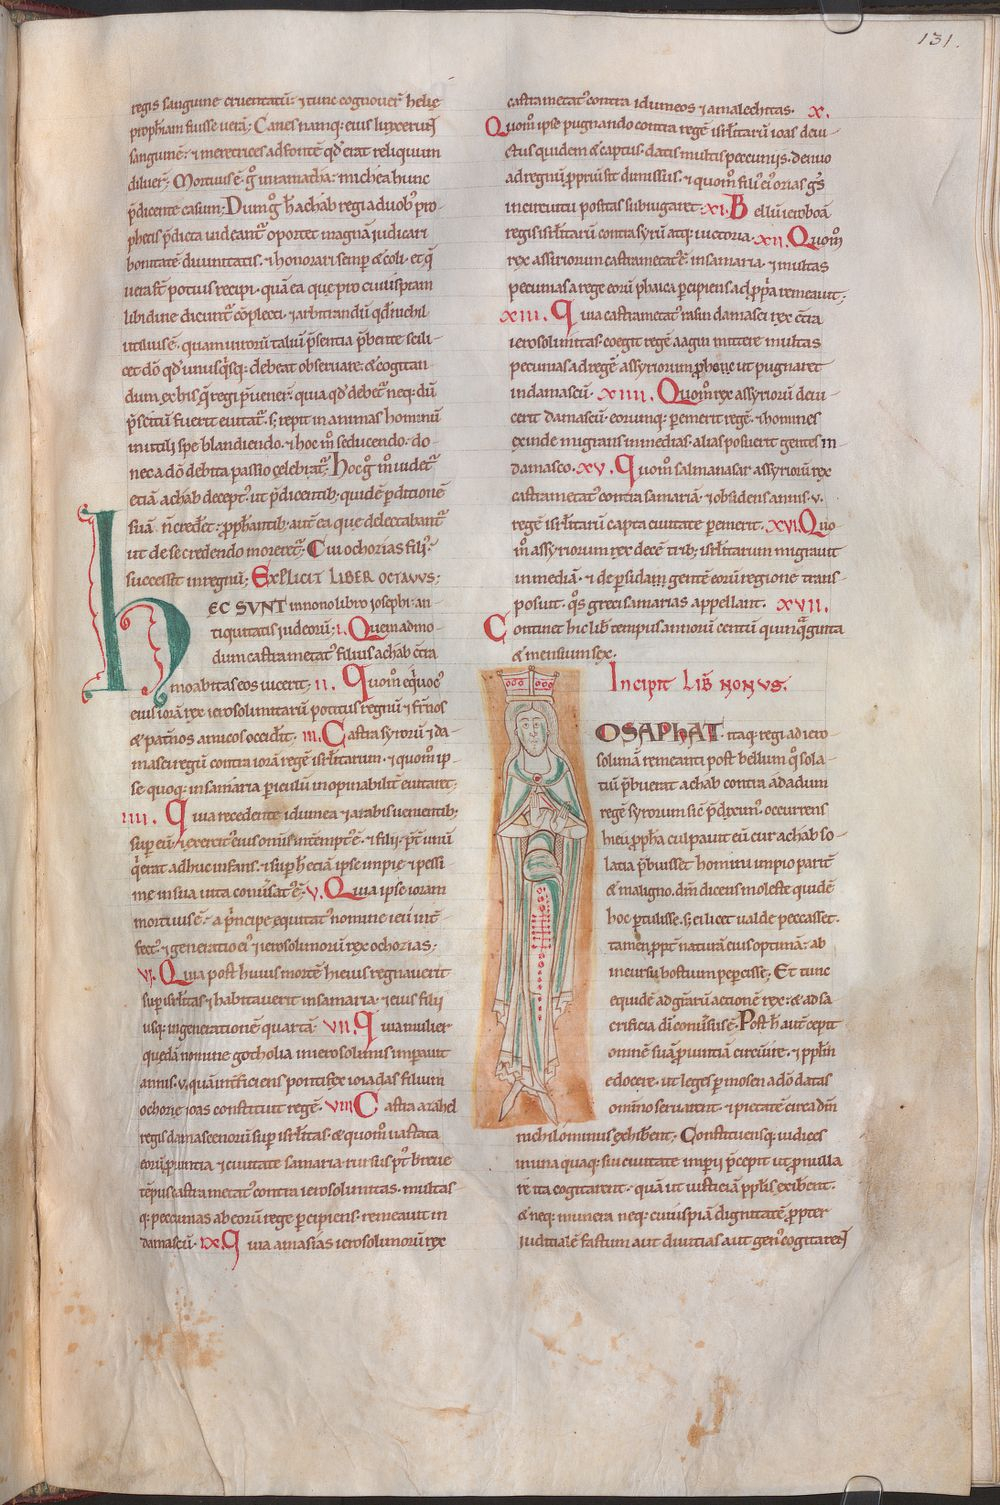 131.
regis sanguine cruentatū: ⁊ tunc cognouer̄ helie
prophiam fuisse uerā; Canes namq: eius linxerunt
sanguinē: ⁊ meretrices ad fontē qd̄ erat reliquum
diluer̄; Mortuus ē. g̊ in ramatha: michea hunc
p̄dicente casum; Dum g̊ h̄ achab regi a duob; pro-
phetis p̄dicta uideant᷑ oportet magnā iudicari
bonitatē diuinitatis. ⁊ honorari semp̱ & coli. et q̄
uera st̄ potius recipi. quā ea que pro cuiuspiam
libidine dicunt᷑ cōplecti. ⁊ arbitrandū qd̄ nichil
utilius ē. quam uirorū taliū p̄sentia p̄bente scili-
cet dō qd̄ unusq̇sq; debeat obseruare: & cogitan-
dum ex his q̄ regi p̄uener̄. quia qd̄ debet᷑ neq: dū
p̄scitū fuerit euitat᷑. s; repit in animas hominū
inutili spe blandiendo. ⁊ hoc m̊ seducendo. do-
nec a dō debita passio celebrat᷑; hoc g̊ m̊ uidet᷑
etiā achab decept᷒. ut p̄dicentib; quidē p̱ditionē
suā n̄ crederet: pp̱hantib; autē ea que delectabant᷑
ut de se credendo moreret᷑. Cui ochozias fili᷒.
successit in regnū; EXPLICIT LIBER OCTAVVS;
hEC SVNT in nono libro iosephi. an-
tiquitatis iudeorū; .i. Quem admo-
dum castrametat᷒ filius achab cc̄tra
moabitas eos uicerit; .ii. Quom̊ eq̇uoc᷒
eius iorā rex ierosolimitarū potitus regnū ⁊ fr̄nos
& patn̄os amicos occidit. .iii. Castra syrorū ⁊ da-
masci regiū contra iorā regē isrl̄itarum. ⁊ quom̊ ip-
se quoq: in samaria p̱iculū inopinabilit̄ euitaret;
.iiii. Quia recedente idumea ⁊ arabis uenientib;
sup̱ eū: ⁊ exercit᷒ eius omīs int̄empt᷒ ē. & filii: p̄t̄ unū
q̇ erat adhuc infans. ⁊ sup̱ h̄ etiā ipse impie ⁊ pessi-
me in sua uita conūsat᷒ ē; .v. Quia ipse ioram
mortuus ē. a p̄ncipe equitat᷒ nomine ieu int̄-
fect᷒. ⁊ generatio ei᷒ ⁊ ierosolimorū rex ochozias;
.vi. Quia post huius mortē hieus regnauerit
sup̱ isrl̄itas ⁊ habitauerit in samaria. ⁊ eius filii
usq; in generationē quartā. .vii. Quia mulier
quedā nomine gotholia in ierosolimis impauit
annis .v. quā int̄ficiens pontifex ioiadas filium
ochozie ioas constituit regē. .viii. Castra azahel
regis damascenorū sup̱ isrl̄itas. & quom̊ uastata
eorū p̱uintia ⁊ ciuitate samaria. rursus p᷒t breue
tēpus castrametat᷒ contra ierosolimitas. multas-
q; peccunias ab eorū rege p̱cipiens. remeauit in
damascū. .ix. Quia amasias ierosolimorū rex
castrametat᷒ contra idumeos ⁊ amalechitas. .x.
Quom̊ ipse pugnando contra regē isrl̄itarū ioas deui-
ctus quidem & captus. datis multis peccuniis. denuo
ad regnū p̱priū sit dimissus. ⁊ quom̊ fili᷒ ei᷒ ozias gēs
in circuitu positas subiugaret. .xi. Bellū ieroboā
regis isrl̄itarū contra syrū atq; uictoria. .xii. Quom̊
rex assiriorum castrametat᷒ ē in samaria. ⁊ multas
peccunias a rege eorū phaica p̱cipiens ad p̱pria remeauit;
.xiii. Quia castrametat᷒ rasin damasci rex cc̄tra
ierosolimitas. coegit regē aagin mittere multas
peccunias ad regē assyriorum p̱hone ut pugnaret
in damascū. .xiiii. Quom̊ rex assyriorū deui-
cerit damascū. eorunq; p̱emerit regē. ⁊ homines
exinde migrans in medias. alias posuerit gentes in
damasco. .xv. Quom̊ salmanasar assyriorū rex
castrametat᷒ contra samariā. ⁊ obsidens annis .v.
regē isrl̄itarū capta ciuitate p̱emerit. .xvi. Quo-
m̊ assyriorum rex decē trib; isrl̄itarum migrauit
in mediā. ⁊ de p̱sidam gentē eorū regione trans-
posuit. q̊s greci samarias appellant. .xvii.
Continet hic lib̄ tempus annorū centū quinq̄ginta
& mensium sex.
Incipit LIB̄ NONVS.
IOSAPhAT. itaq: regi ad iero-
solimā remeanti post bellum q̊ sola-
tiū p̄buerat achab contra adadum
regē syrorum sic̄ p̄diximus. occurrens
hieu pp̱ha culpauit eū cur achab so-
latia p̄buisset homini impio pariter
& maligno. dm̄ dicens moleste quidē
hoc p̱tulisse. s; scilicet ualde peccasset.
tamen pp̱t̄ naturā eius optimā: ab
incursu hostium pep̱cisse; Et tunc
equidē ad gr̄arū actionē rex: & ad sa-
crificia di conūsus ē. Post h̄ autē cepit
omnē suā p̱uintiā circuire. ⁊ ppl̄m
edocere. ut leges p̱ mosen a dō datas
omīno seruarent. ⁊ pietatē circa dm̄
nichilominus exhibent; Constituensq; iudices
in una quaq; sui ciuitate imperii p̄cepit ut p̱ nulla
rē ita cogitarent. quā ut iusticiā ppl̄is exibent.
& neq; munera neq; cuiuspiā dignitatē p̱pter
iuditialē fastum aut diuitias aut gen᷒ cogitarent